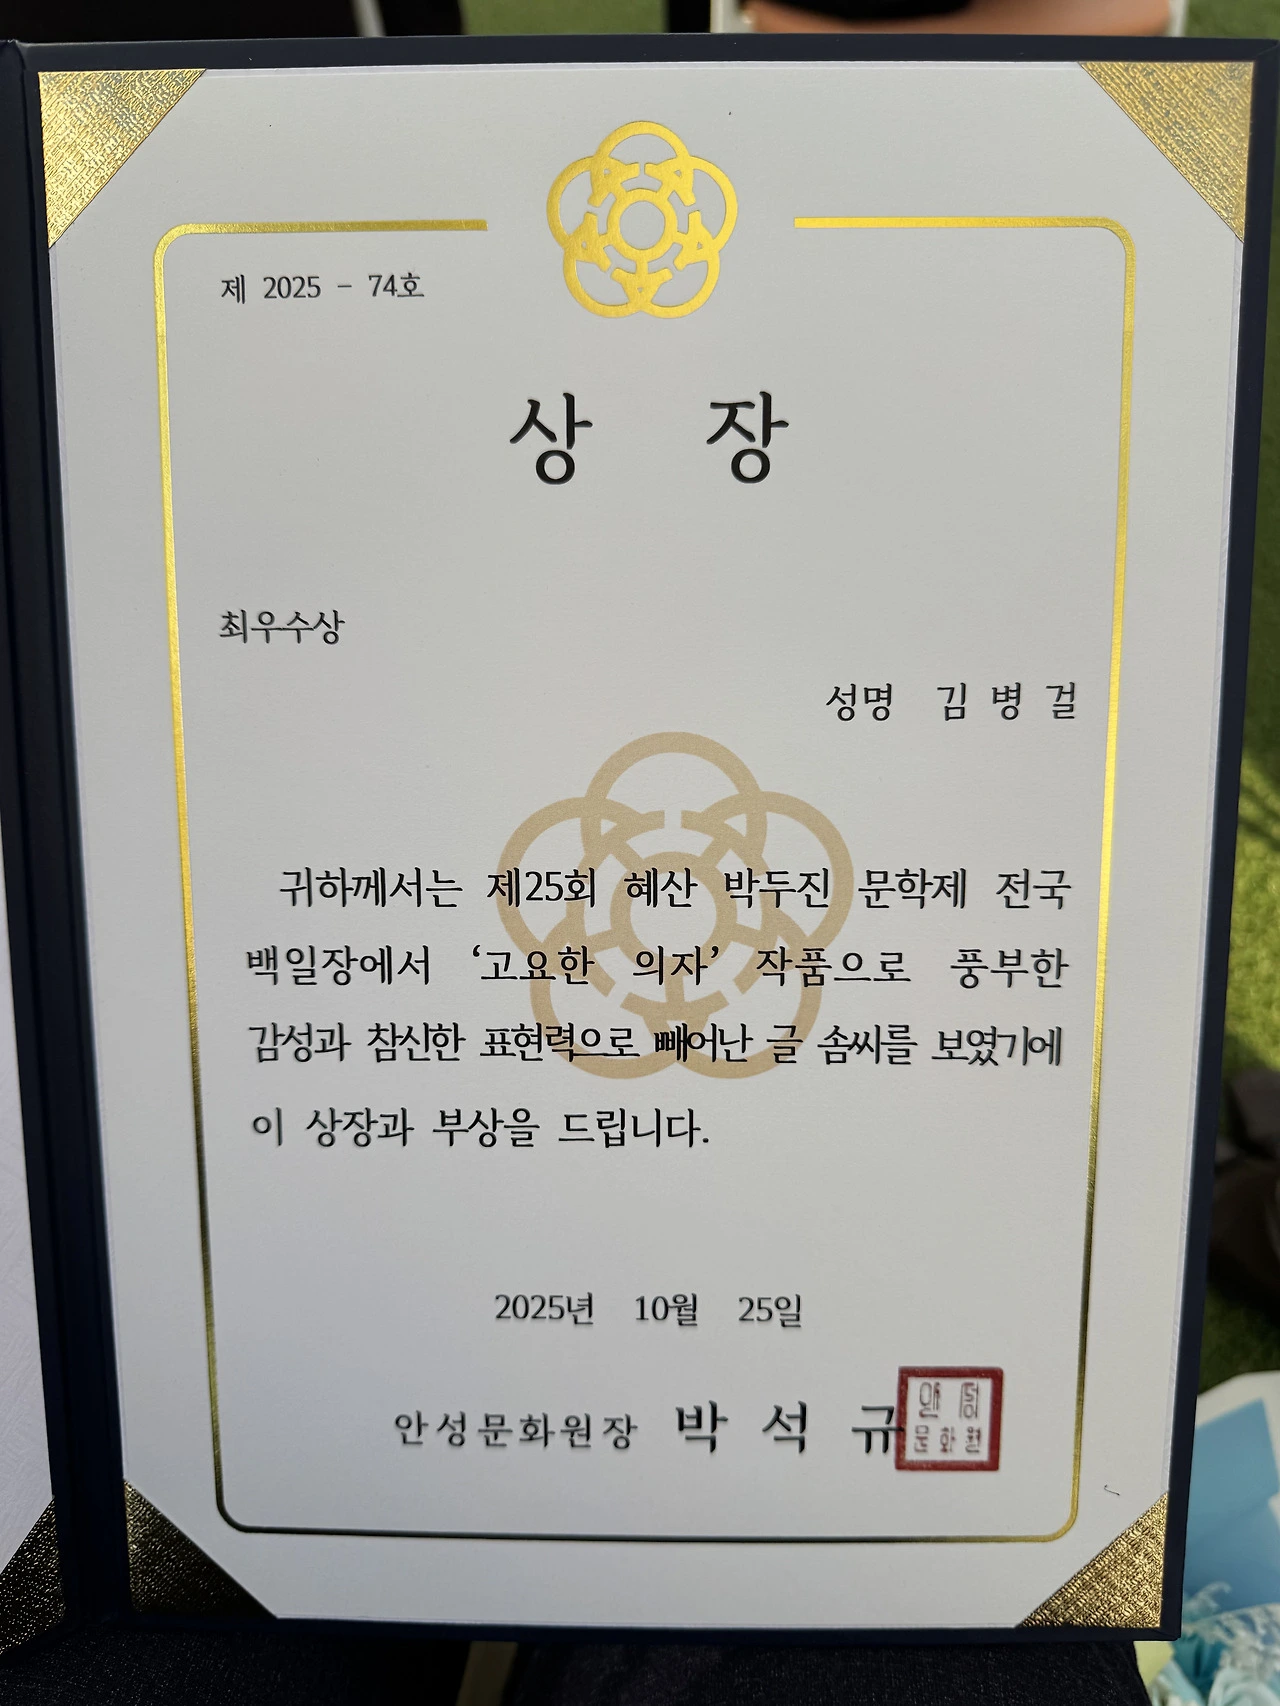 제 2025 - 74호
상 장
최우수상
성명 김 병 걸
귀하께서는 제25회 혜산 박두진 문학제 전국
백일장에서 ‘고요한 의자’ 작품으로 풍부한
감성과 참신한 표현력으로 빼어난 글 솜씨를 보였기에
이 상장과 부상을 드립니다.
2025년 10월 25일
안성문화원장 박 석 규
문화원